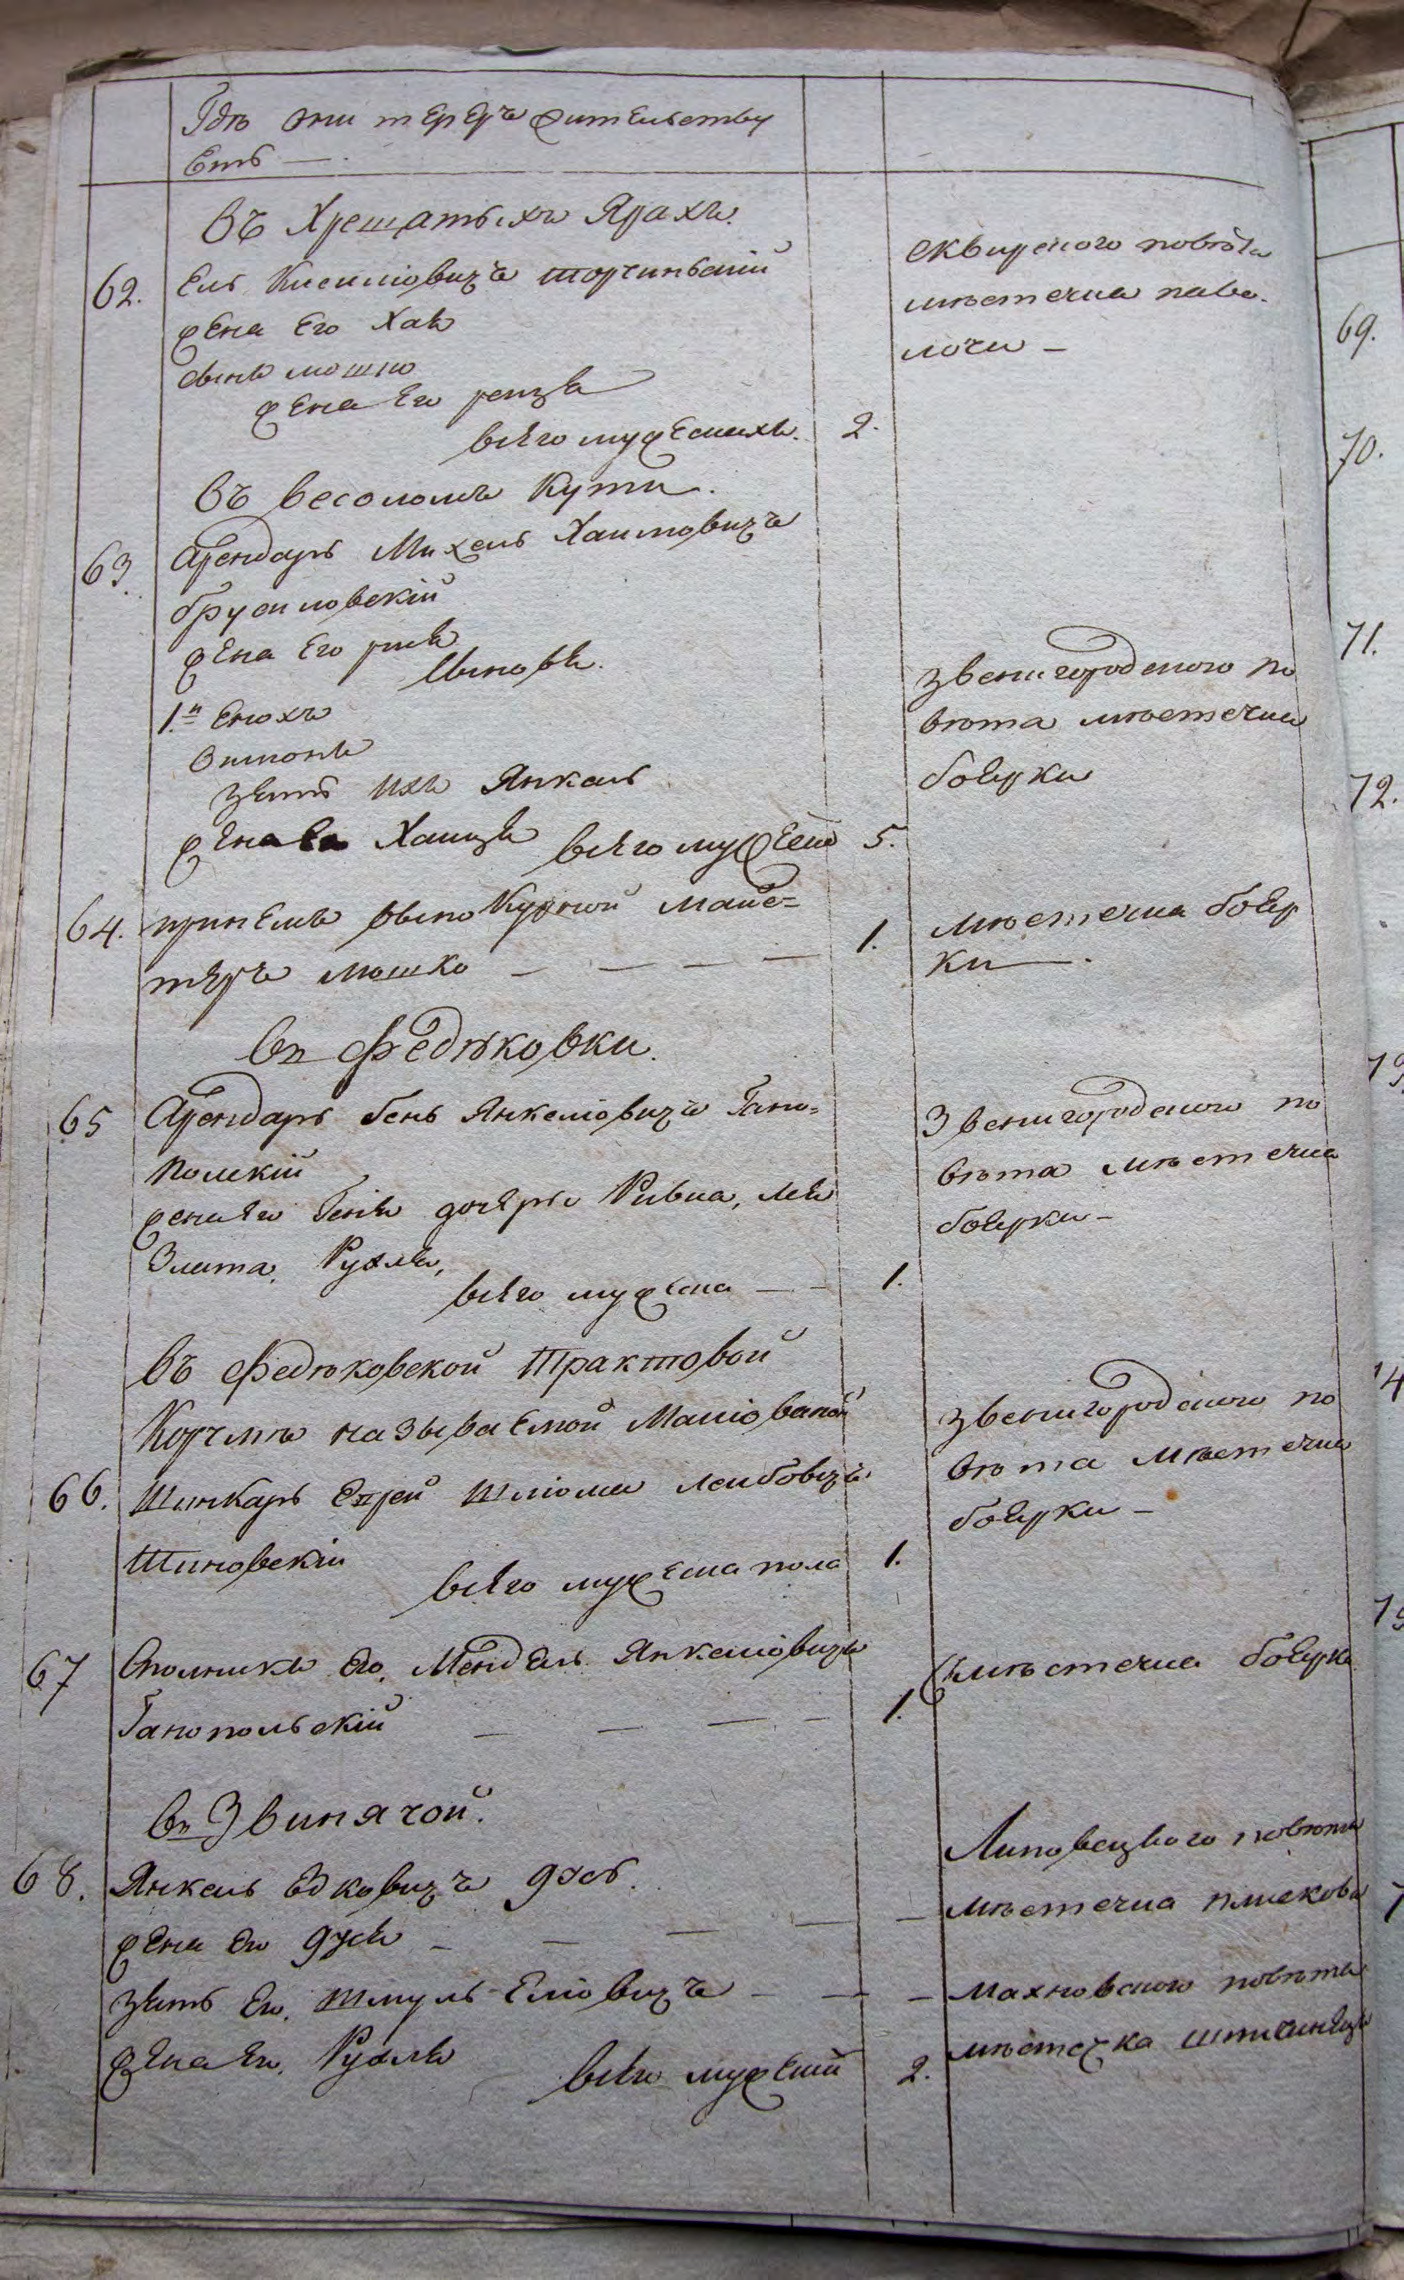 Гдѣ они теперъ жительству
етъ —.
Въ Хрещатыхъ Ярахъ.
62. Ель Киселіовичъ Торчинскій
жена его Хая
сынъ мошко
жена его рейзя
всего мужескихъ. 2.
сквирского повѣта
мѣстечка паво-
лочи —
Въ Весоломъ Кути.
63. Арендарь Михель Хаимовичъ
брусиловскій
жена его рися
Сыновя.
1.й Енохъ
Зимонъ
зять ихъ Янкель
жена Ево Хаицзя всего мужеск 5.
звенигородского по
вѣта мѣстечка
боярки
64. принемъ винокурной майс-
теръ мошко — — — — 1.
мѣстечка бояр
ки —.
въ Федюковки.
65 Арендарь бень Янкеліовичъ Гано-
полскій
жена его Геня дочеры Ривка, лея
Злата, Рухля,
всего мужеска — — 1.
Звенигородского по
вѣта мѣстечка
боярки —
Въ Федюковской Трактовой
Корчмѣ называемой Маліованой
66. Шинкарь Еврей Шліома лейбовичъ
Шиновскій
всего мужеска пола 1.
звенигородского по
вѣта мѣстечка
боярки —
67 Сполникъ его, Мендель Янкеліовичъ
Ганопольскій — — — — 1.
мѣстечка боярки
въ Звинячой.
68. Янкель Едковичъ
жена его — — — —
зять его, Шмуль Еліовичъ — — —
жена его, Рухля всего мужескій 2.
Липовецкого повѣта
мѣстечка плискова
махновского повѣта
мѣстечка
69.
70.
71.
72.